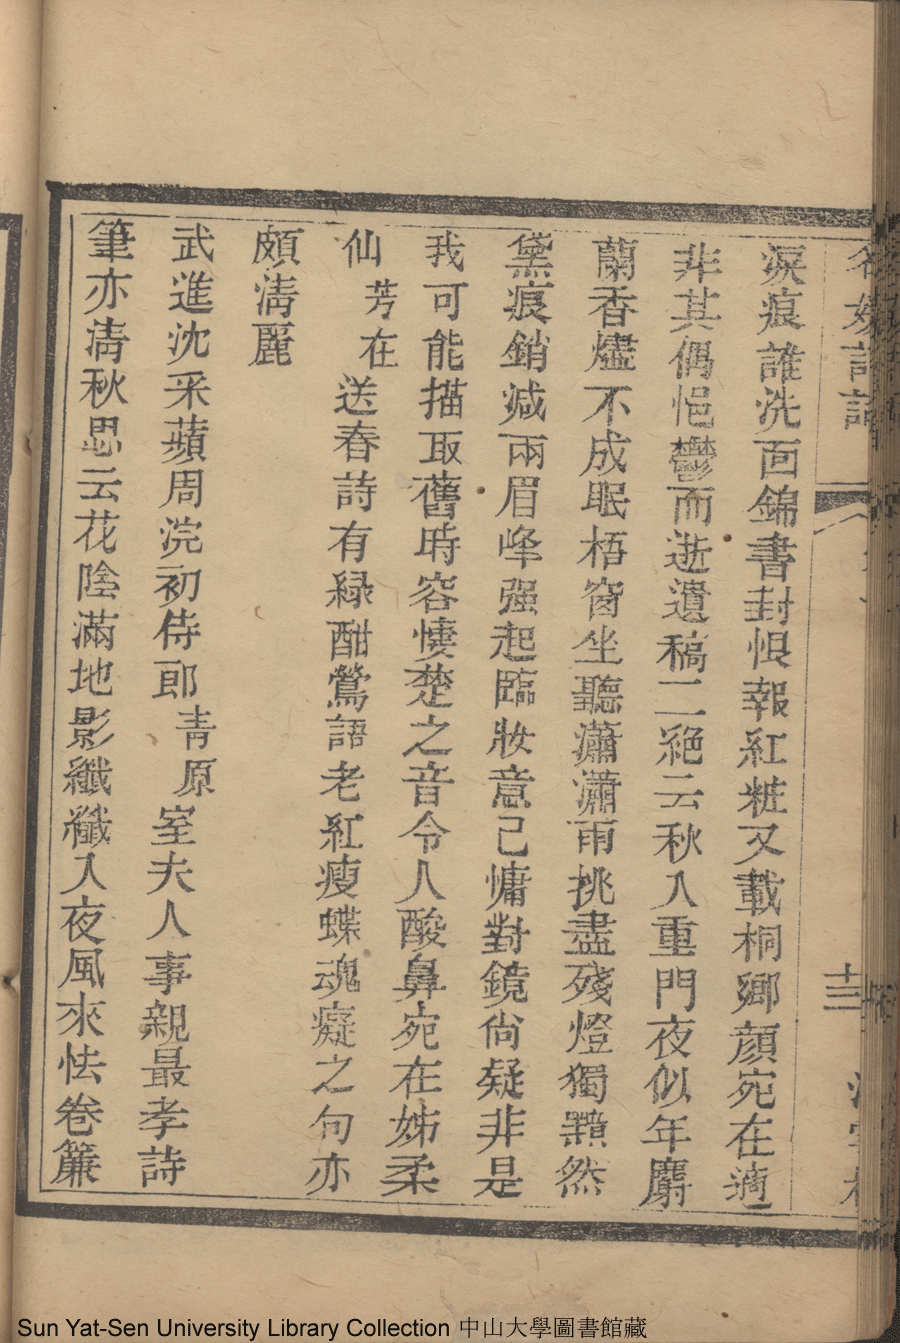 名媛詩話
十三
淚痕誰洗面錦書封恨報紅粧又載桐鄉顏宛在適
非其偶悒鬱而逝遺稿二絕云秋入重門夜似年麝
蘭香燼不成眠梧窗坐聽瀟瀟雨挑盡殘燈獨黯然
黛痕銷減兩眉峰强起臨妝意已慵對鏡尙疑非是
我可能描取舊時容悽楚之音令人酸鼻宛在姊柔
仙芳在送春詩有綠酣鶯語老紅瘦蝶魂癡之句亦
頗淸麗
武進沈采蘋周浣初侍郎靑原室夫人事親最孝詩
筆亦淸秋思云花陰滿地影纖纖入夜風來怯卷簾
Sun Yat-Sen University Library Collection 中山大學圖書館藏